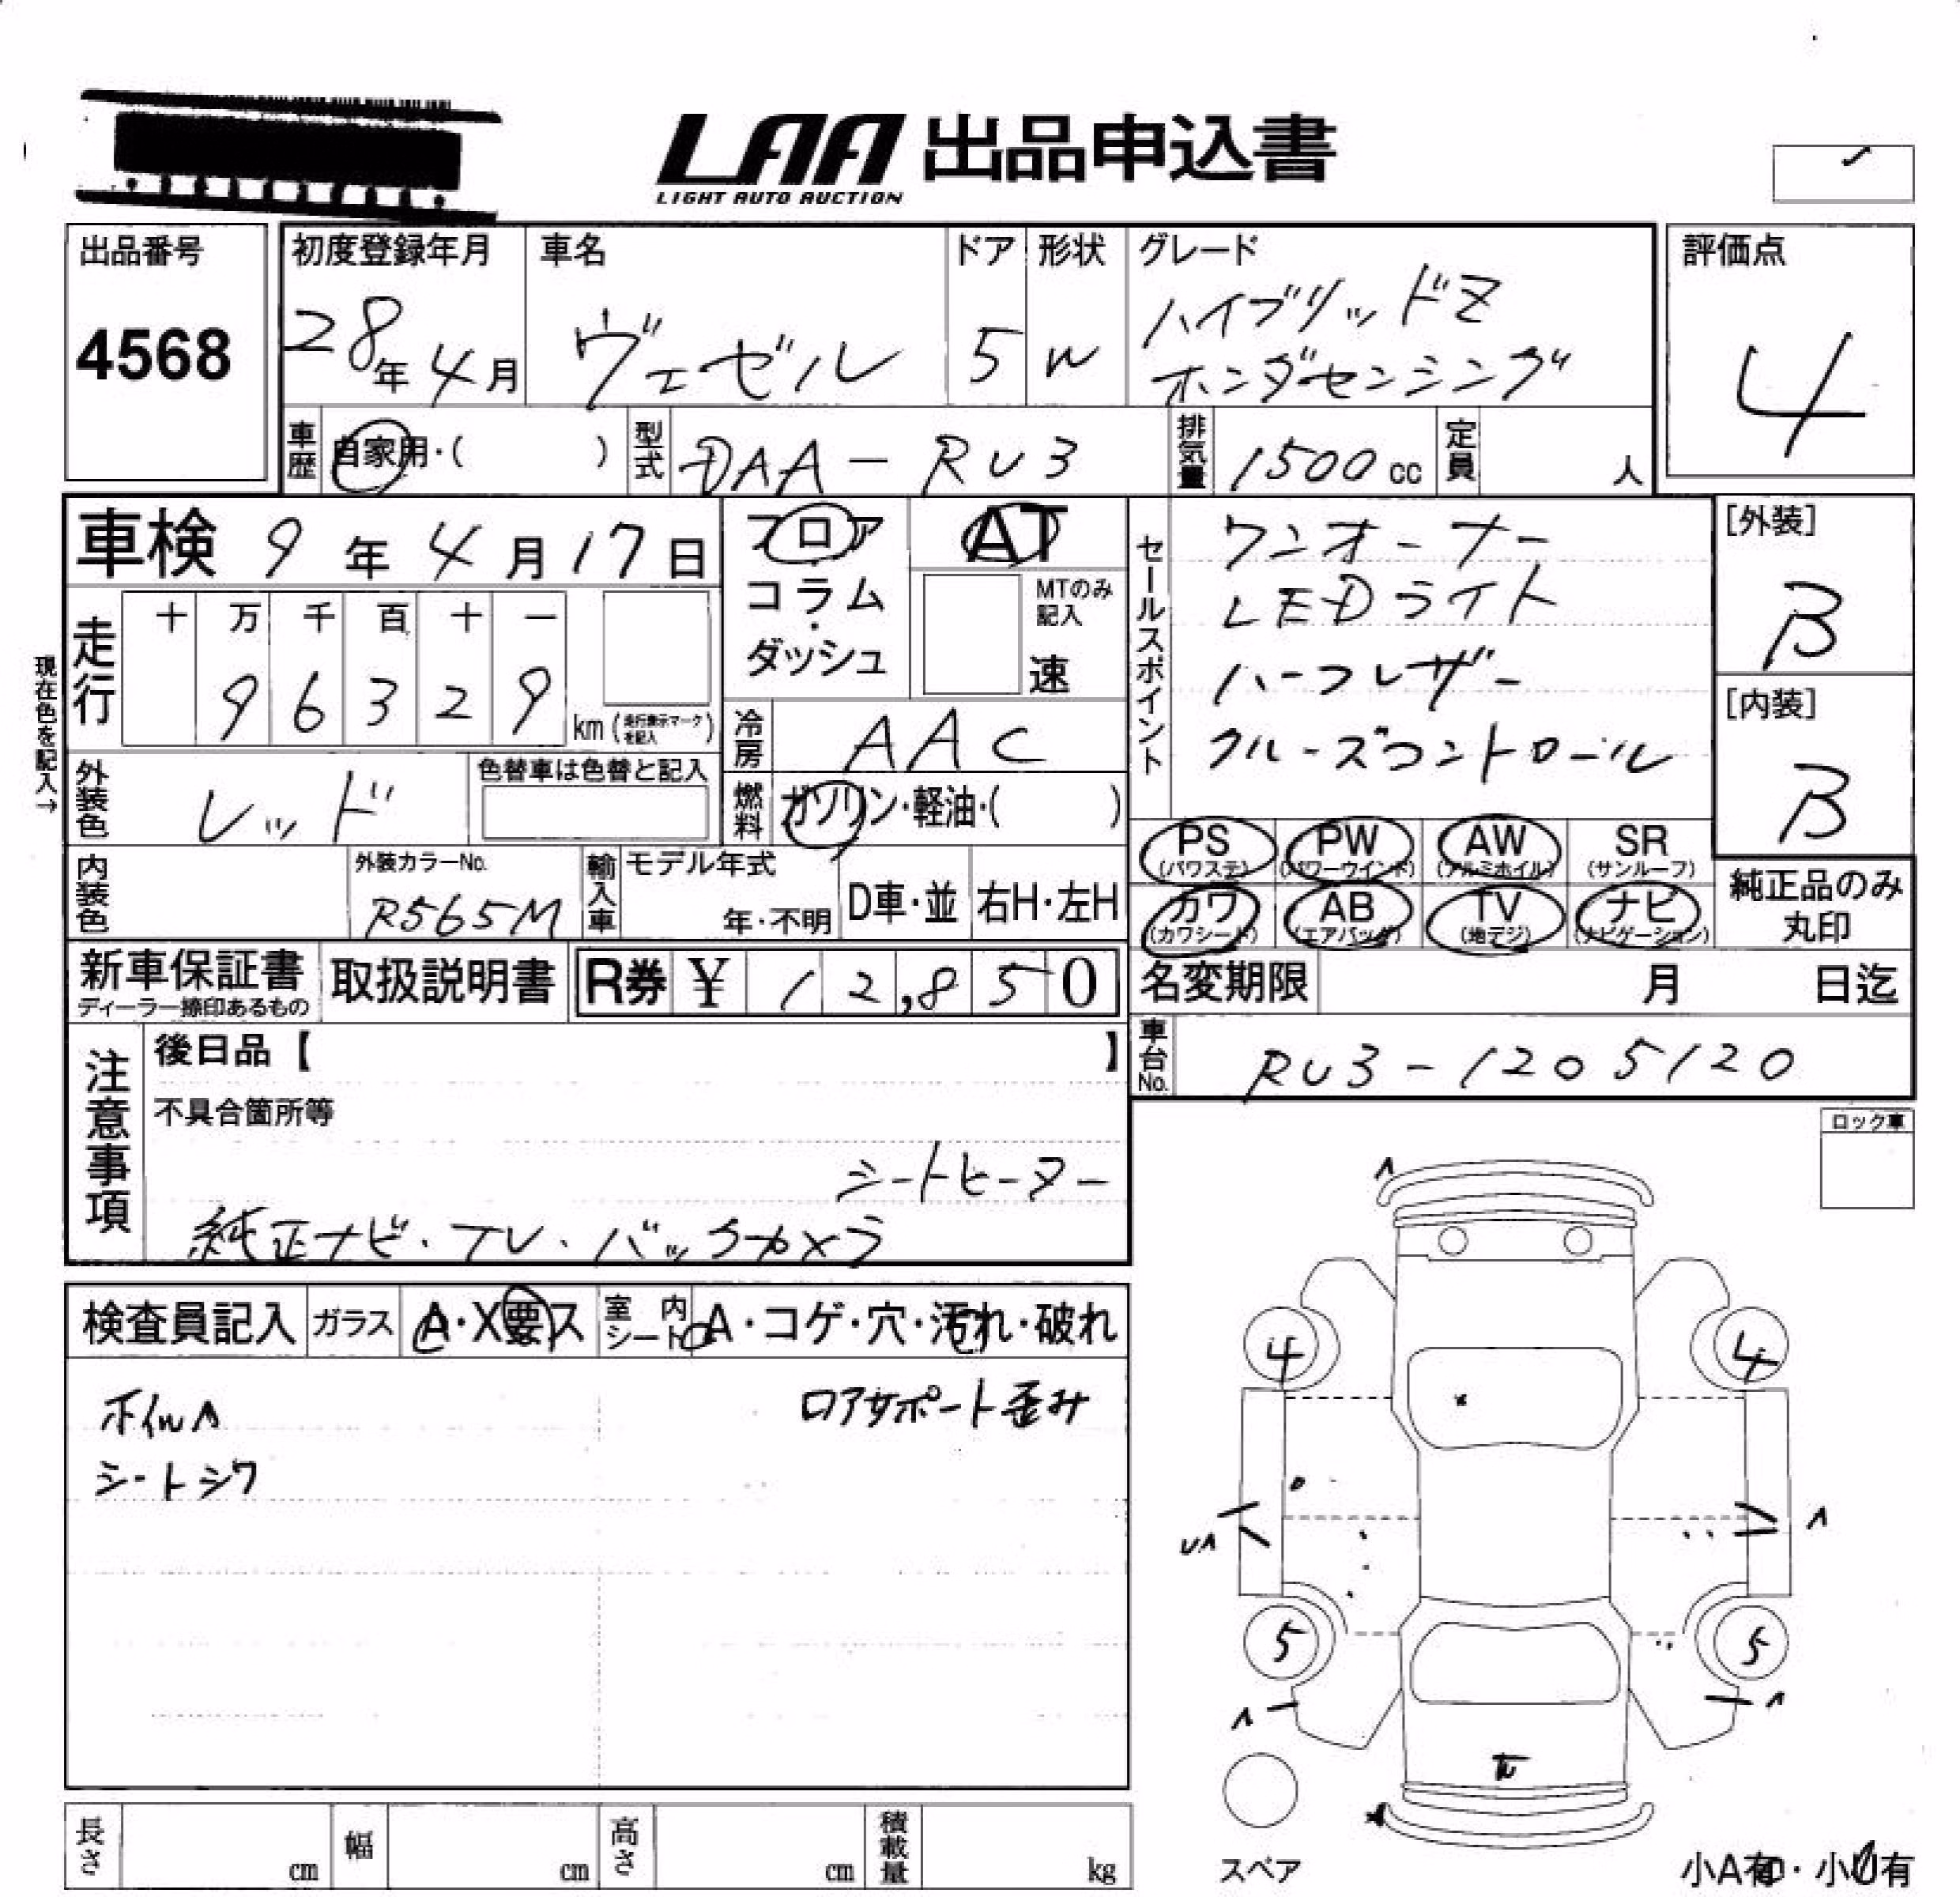 LAA 出品申込書
LIGHT AUTO AUCTION
出品番号
4568
初度登録年月
28年 4月
車名
ヴェゼル
ドア
5
形状
W
グレード
ハイブリッドZ
ホンダセンシング
評価点
4
車歴
自家用・( )
型式
DAA-RU3
排気量
1500 cc
定員
人
車検 9年 4月 17日
フロア
コラム
・
ダッシュ
AT
MTのみ
記入
速
セールスポイント
ワンオーナー
LEDライト
ハーフレザー
クルーズコントロール
[外装]
B
[内装]
B
現在色を記入→
走行
十 万 千 百 十 一
9 6 3 2 9
km (走行表示マークを記入)
冷房
AAC
外装色
レッド
色替車は色替と記入
燃料
ガソリン・軽油・( )
PS (パワステ)
PW (パワーウインド)
AW (アルミホイル)
SR (サンルーフ)
カワ (カワシート)
AB (エアバッグ)
TV (地デジ)
ナビ (ナビゲーション)
純正品のみ
丸印
内装色
外装カラーNo.
R565M
輸入車
モデル年式
年・不明
D車・並
右H・左H
新車保証書
ディーラー捺印あるもの
取扱説明書
R券 ¥ 12,850
名変期限 月 日迄
車台No.
RU3-1205120
注意事項
後日品【 】
不具合箇所等
シートヒーター
純正ナビ・TV・バックカメラ
ロック車
検査員記入
ガラス
A・X要ス
室内シート
A・コゲ・穴・汚れ・破れ
ホイルA
ロアサポート歪み
シートシワ
4
4
UA
A
5
5
A
A
スペア
長さ
cm
幅
cm
高さ
cm
積載量
kg
小A有・小U有